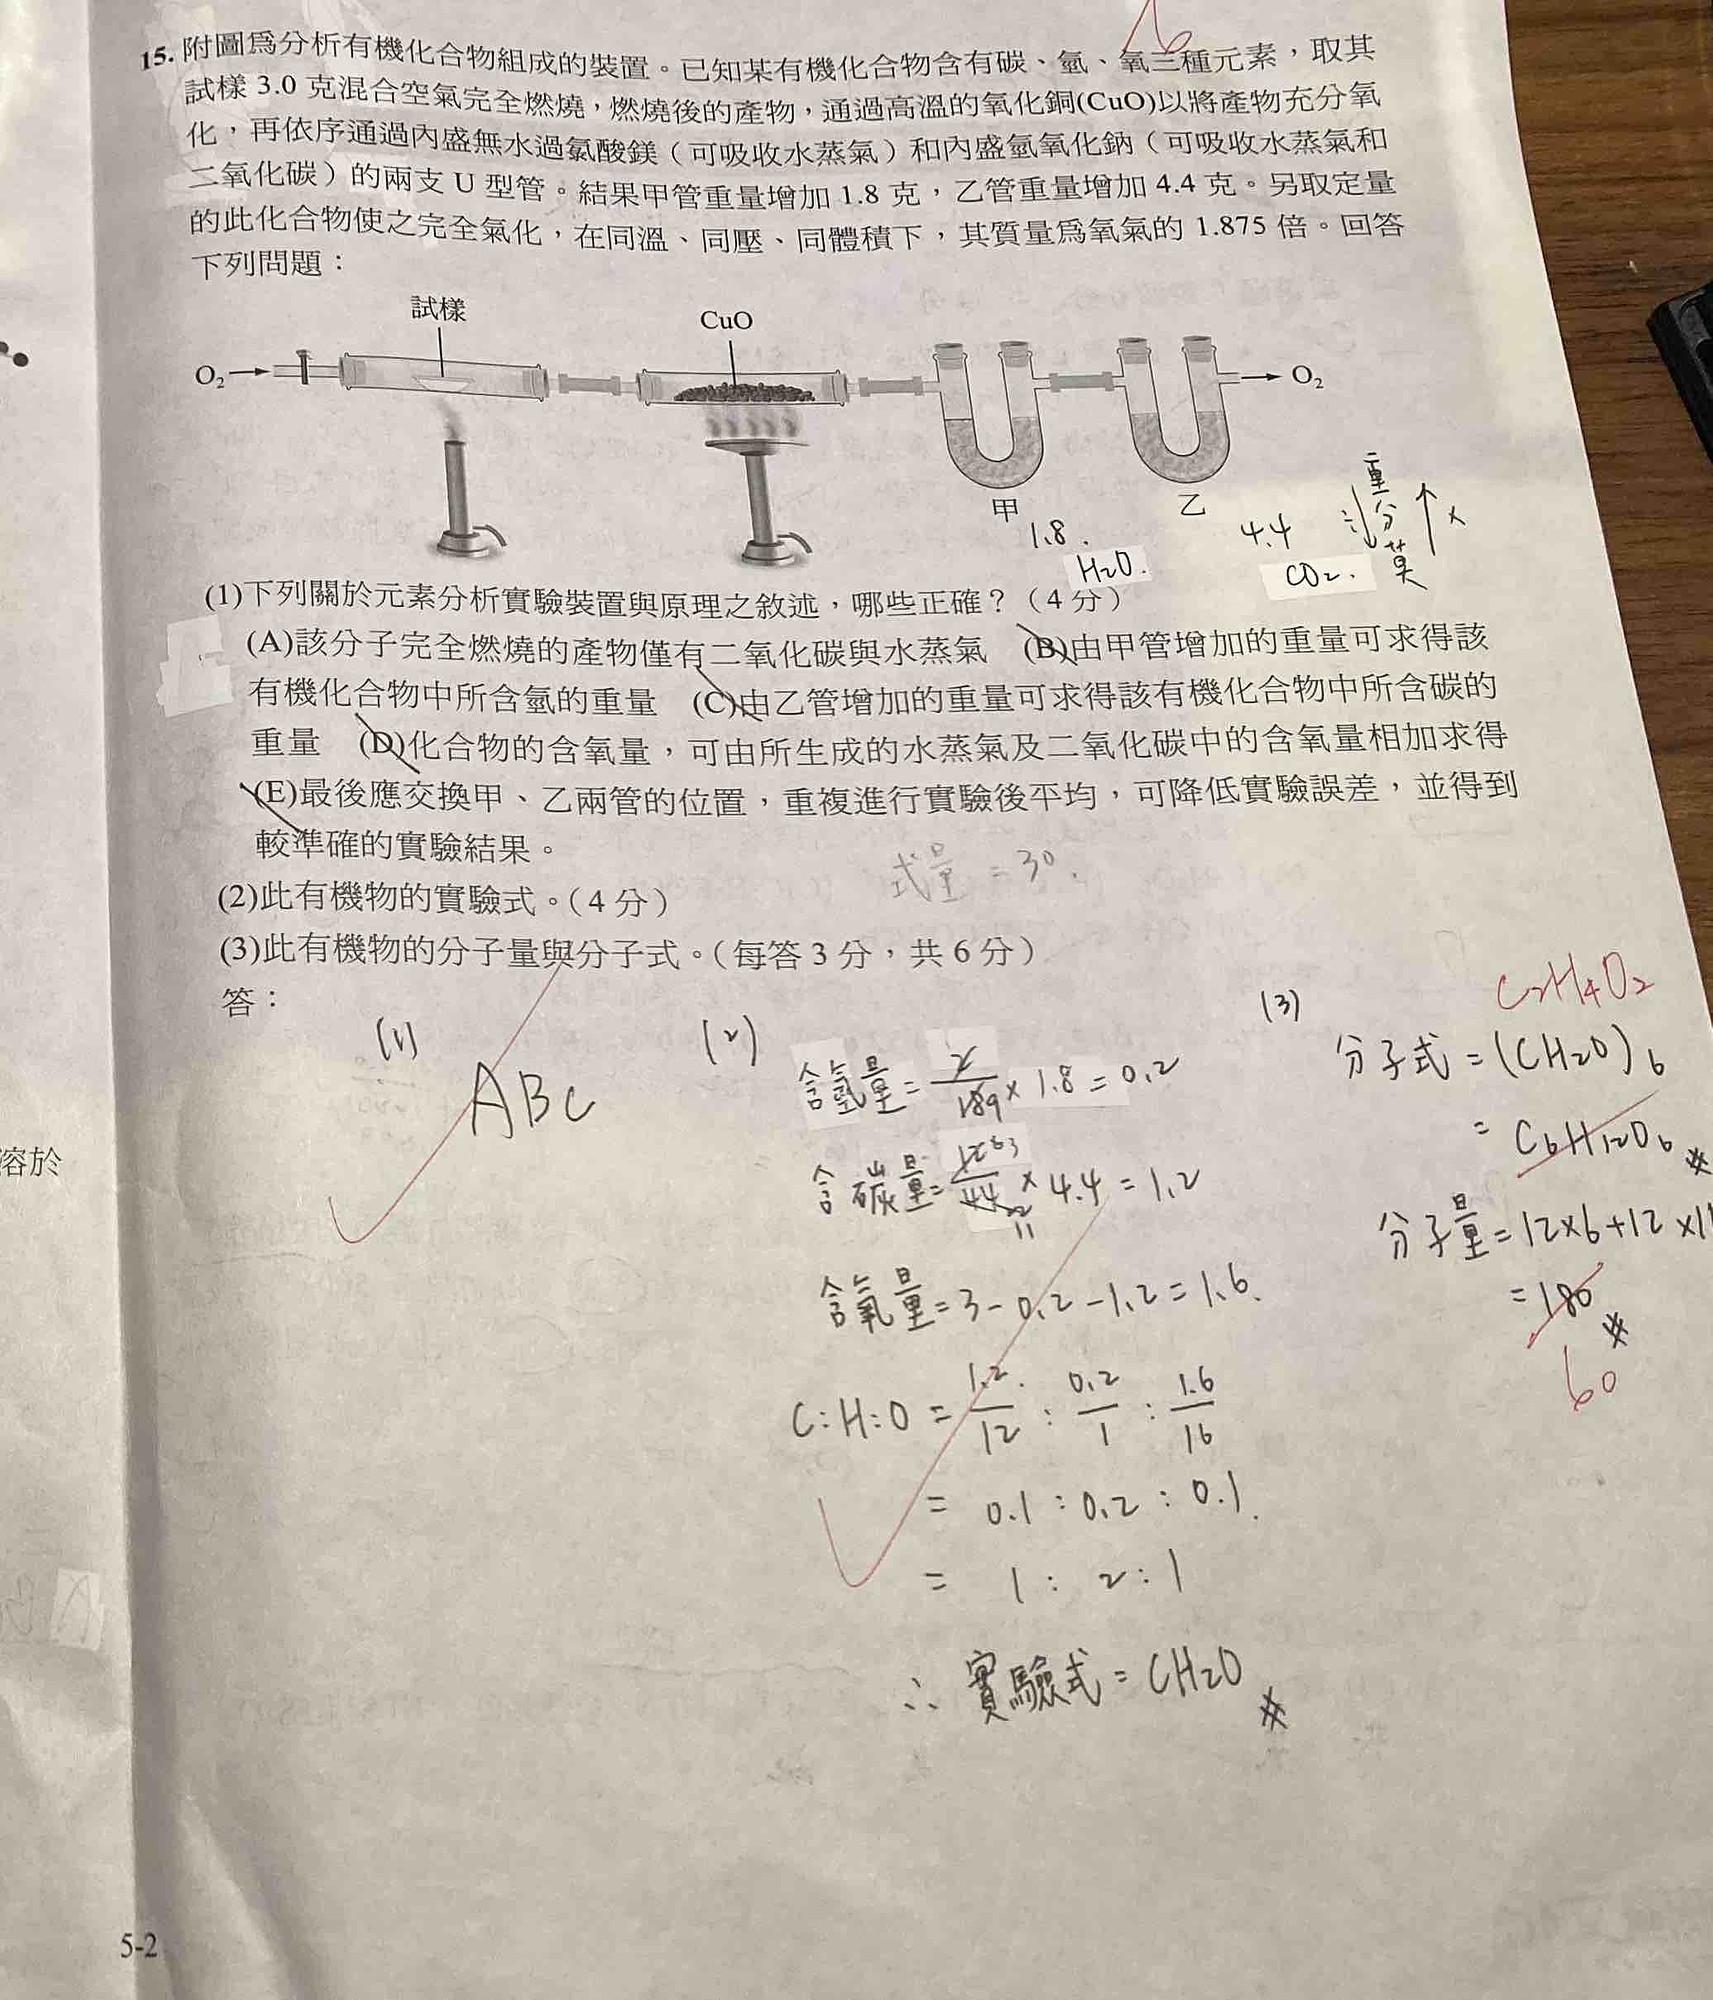 15. 附圖為分析有機化合物組成的裝置。已知某有機化合物含有碳、氫、氧三種元素，取其
試樣 3.0 克混合空氣完全燃燒，燃燒後的產物，通過高溫的氧化銅(CuO)以將產物充分氧
化，再依序通過內盛無水過氯酸鎂（可吸收水蒸氣）和內盛氫氧化鈉（可吸收水蒸氣和
二氧化碳）的兩支 U 型管。結果甲管重量增加 1.8 克，乙管重量增加 4.4 克。另取定量
的此化合物使之完全氣化，在同溫、同壓、同體積下，其質量為氧氣的 1.875 倍。回答
下列問題：
試樣
CuO
O₂
O₂
甲
乙
1.8.
H₂O.
4.4
CO₂.
重
分
莫
×
(1)下列關於元素分析實驗裝置與原理之敘述，哪些正確？（4 分）
(A)該分子完全燃燒的產物僅有二氧化碳與水蒸氣 (B)由甲管增加的重量可求得該
有機化合物中所含氫的重量 (C)由乙管增加的重量可求得該有機化合物中所含碳的
重量 (D)化合物的含氧量，可由所生成的水蒸氣及二氧化碳中的含氧量相加求得
(E)最後應交換甲、乙兩管的位置，重複進行實驗後平均，可降低實驗誤差，並得到
較準確的實驗結果。
式量 = 30.
(2)此有機物的實驗式。（4 分）
(3)此有機物的分子量與分子式。（每答 3 分，共 6 分）
答：
(1)
ABC
(2)
含氫量 = 2/18 × 1.8 = 0.2
含碳量 = 12/44 × 4.4 = 1.2
含氧量 = 3 - 0.2 - 1.2 = 1.6.
C:H:O = 1.2/12 : 0.2/1 : 1.6/16
= 0.1 : 0.2 : 0.1.
= 1 : 2 : 1
∴ 實驗式 = CH₂O
(3)
C₂H₄O₂
分子式 = (CH₂O)₆
= C₆H₁₂O₆
分子量 = 12×6+12×1
= 180
60
溶於
5-2